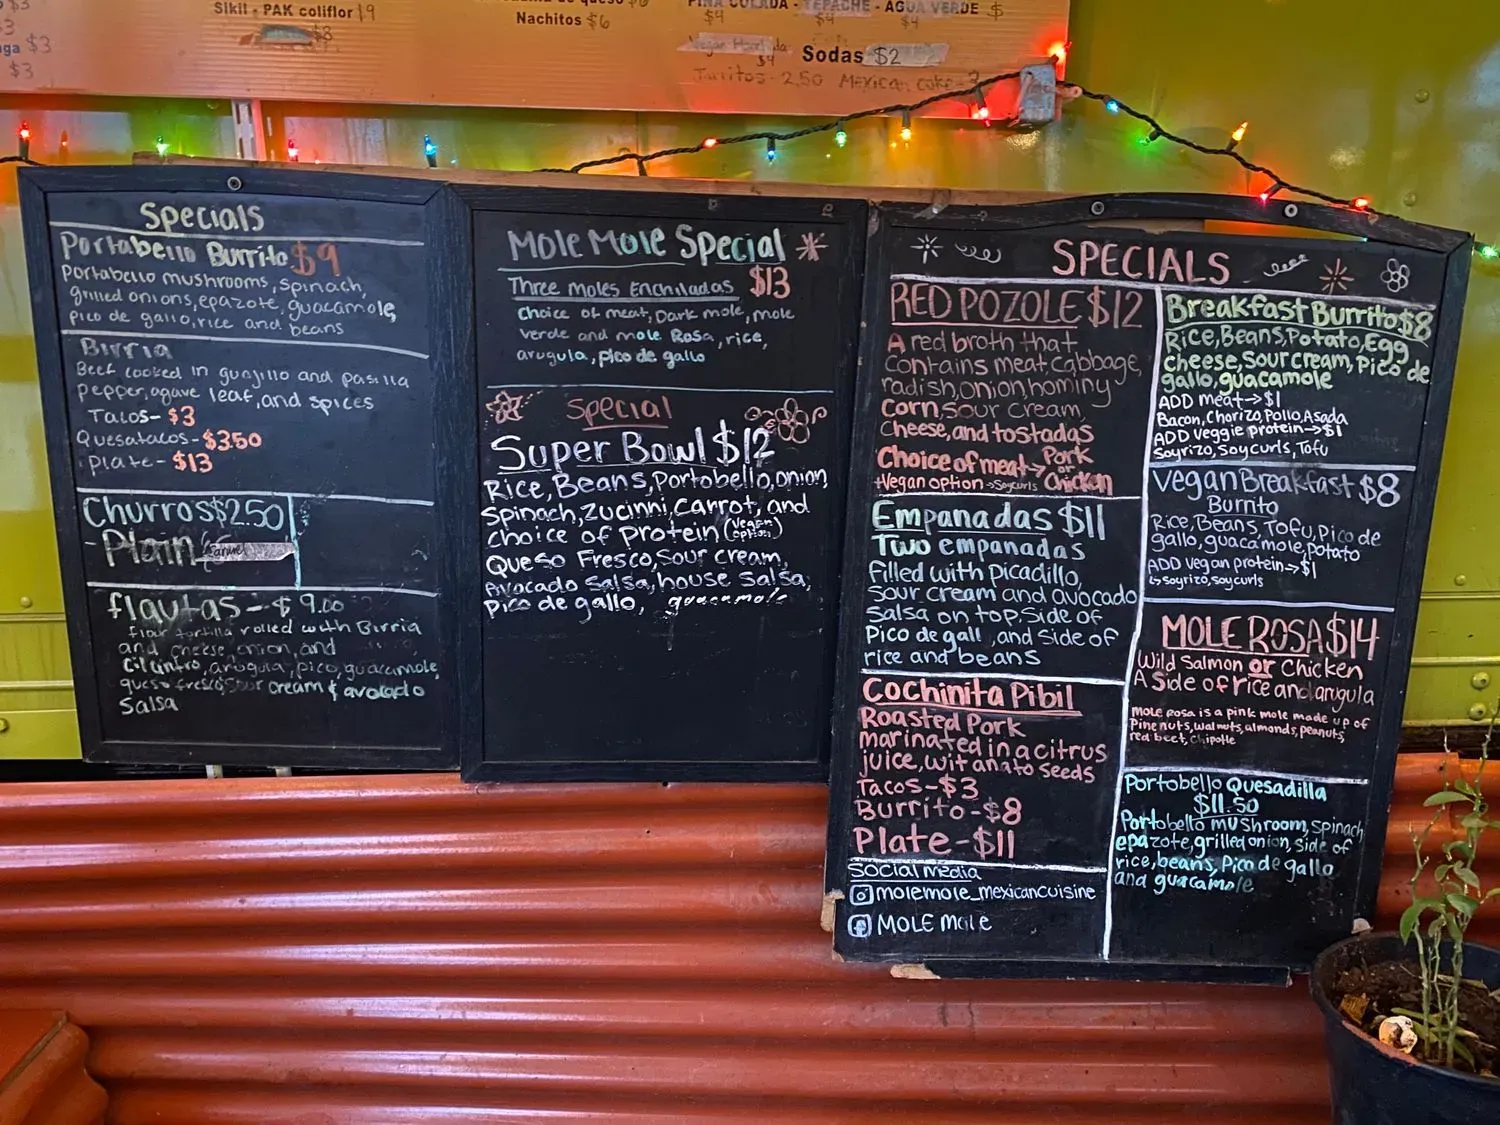 $3
$3
$3
$3
Sikil - PAK coliflor $9
$8
Nachitos $6
PIÑA COLADA - TEPACHE - AGUA VERDE $
$4 $4 $4
Vegan
$4
Sodas $2
Jaritos - 2.50 Mexican coke - 3
Specials
Portabello Burrito $9
Portabello mushrooms, spinach,
grilled onions, epazote, guacamole,
Pico de gallo, rice and beans
Birria
Beef cooked in guajillo and pasilla
pepper, agave leaf, and spices
Tacos - $3
Quesatacos - $3.50
Plate - $13
Churros $2.50
- Plain
flautas - $9.00
flour tortilla rolled with Birria
and cheese, onion, and
Cilantro, arugula, pico, guacamole,
queso fresco, sour cream & avocado
Salsa
Mole Mole Special
Three Moles Enchiladas $13
choice of meat, Dark mole, mole
verde and mole Rosa, rice,
arugula, pico de gallo
Special
Super Bowl $12
Rice, Beans, Portobello, onion
Spinach, zucinni, Carrot, and
choice of Protein (Vegan option)
Queso Fresco, Sour cream,
Avocado Salsa, house salsa,
Pico de gallo, guacamole
SPECIALS
RED POZOLE $12
A red broth that
contains meat, cabbage,
radish, onion, hominy
corn, sour cream,
Cheese, and tostadas
Choice of meat → Pork or Chicken
+Vegan option → Soycurls
Empanadas $11
Two empanadas
Filled with picadillo,
sour cream and avocado
Salsa on top. Side of
Pico de gall, and side of
rice and beans
Cochinita Pibil
Roasted Pork
marinated in a citrus
juice, wit anato seeds
Tacos - $3
Burrito - $8
Plate - $11
Social media
molemole_mexicancuisine
MOLE Mole
Breakfast Burrito $8
Rice, Beans, Potato, Egg
Cheese, Sour cream, Pico de
gallo, guacamole
ADD meat → $1
Bacon, Chorizo, Pollo, Asada
ADD Veggie protein → $1
Soyrizo, Soycurls, Tofu
Vegan Breakfast $8
Burrito
Rice, Beans, Tofu, Pico de
gallo, guacamole, potato
ADD vegan protein → $1
↳ soyrizo, soycurls
MOLE ROSA $14
Wild Salmon or Chicken
A Side of rice and arugula
Mole Rosa is a pink mole made up of
Pine nuts, walnuts, almonds, peanuts,
red beet, Chipotle
Portobello Quesadilla
$11.50
Portobello mushroom, spinach
epazote, grilled onion, side of
rice, beans, Pico de gallo
and guacamole